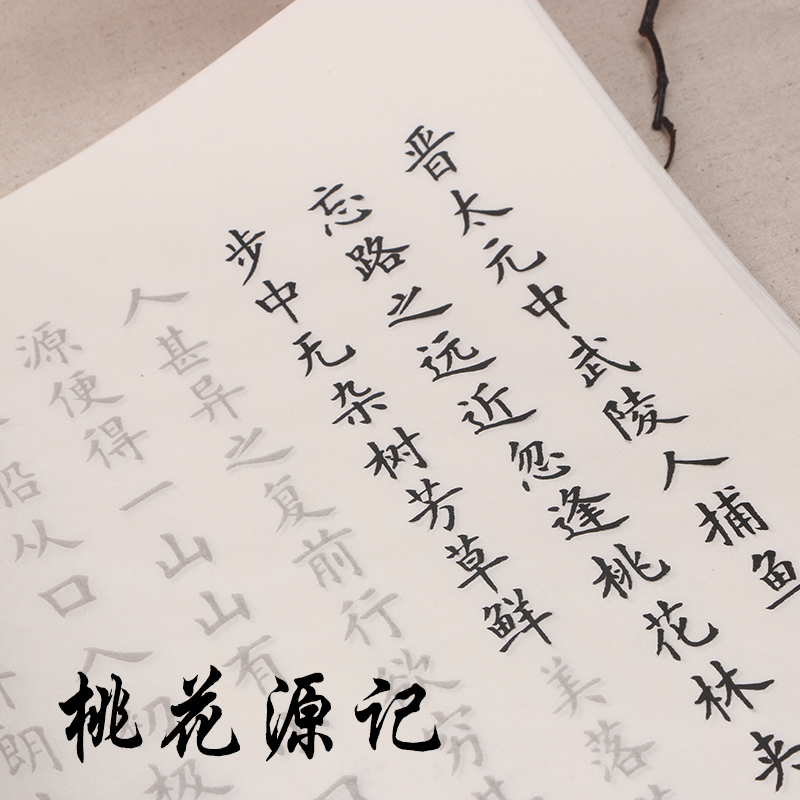 晋太元中武陵人捕鱼
忘路之远近忽逢桃花林夹
步中无杂树芳草鲜美落
人甚异之复前行欲穷
源便得一山山有
船从口入初极
朗
桃花源记